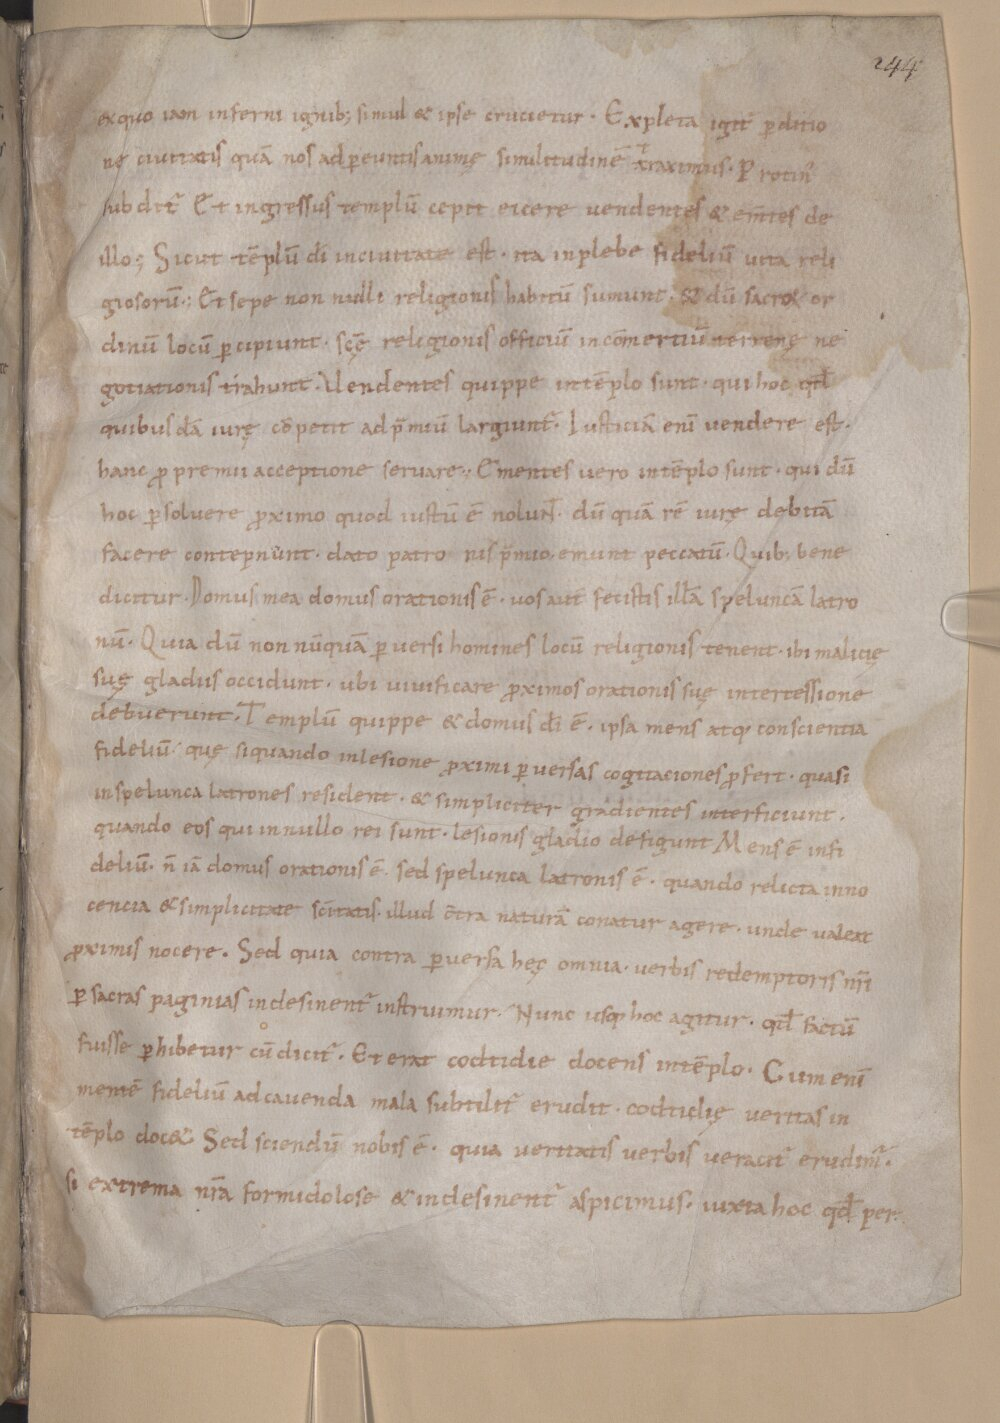 244
exquo iam inferni ignib; simul & ipse crucietur. Expleta igit᷑ ꝑditio
nę ciuitatis quā nos adꝑeuntis animę similitudinē traximus. Protin᷑
subdit᷑ Et ingressus templū cepit eicere uendentes & em̄tes de
illo; Sicut tēplū dī inciuitate est. ita inplebe fideliū uita reli
giosorū; Et sepe non nulli religionis habitū sumunt. & dū sacroꝝ or
dinū locū ꝑcipiunt. scę̄ religionis officiū incōmertiū terrenę ne
gotiationis trahunt. Uendentes quippe intēplo sunt. qui hoc qd̄
quibusdā iurę cōpetit adp̄miū largiunt᷑. Iusticiā enī uendere est.
hanc ꝓ premii acceptione seruare; Ementes uero intēplo sunt. qui dū
hoc ꝑsoluere ꝓximo quod iustū ē nolunt̄. dū quā rē iurę debitā
facere contepnūnt. dato patro nis p̄mio. emunt peccatū. Quib; bene
dicitur. Domus mea domus orationis ē. uos aut̄ fecistis illā speluncā latro
nū. Quia dū non nūquā ꝑuersi homines locū religionis tenent. ibi malicię
suę gladiis occidunt. ubi uiuificare ꝓximos orationis suę intertessione
debuerunt. Templū quippe & domus dī ē. ipsa mens atq; conscientia
fideliū. quę siquando inlesione ꝓximi ꝑuersas cogitaciones ꝓfert. quasi
inspelunca latrones resident. & simpliciter gradientes interficiunt.
quando eos qui innullo rei sunt. lesionis gladio defigunt Mens ē infi
deliū. n̄ iā domus orationis ē. sed spelunca latronis ē. quando relicta inno
cencia & simplicitate sc̄itatis. illud c̄tra naturā conatur agere. unde ualeat
ꝓximis nocere. Sed quia contra ꝑuersa hęc omnia. uerbis redemptoris nr̄i
ꝑ sacras paginias indesinent᷑ instriumur. Nunc usq; hoc agitur. qd̄ factū
fuisse ꝑhibetur cū dicit᷑. Et erat codtidie docens intēplo. Cum enī
mentē fideliū adcauenda mala subtilit᷑ erudit. codtidię ueritas in
tēplo doc&. Sed sciendū nobis ē. quia ueritatis uerbis ueracit᷑ erudim᷑.
si extrema nr̄a formidolose & indesinent᷑ aspicimus. iuxta hoc qd̄ per